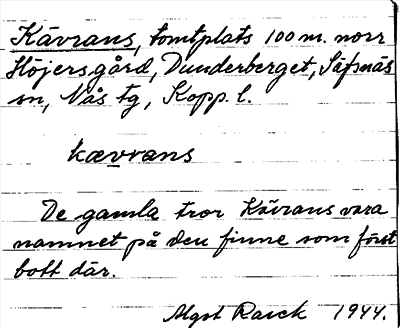 Kävrans, tomtplats 100 m. norr
Höjersgård, Dunderberget, Säfsnäs
sn, Nås tg, Kopp. l.
kævrans
De gamla tror Kävrans vara
namnet på den finne som först
bott där.
Algot Rarck 1944.